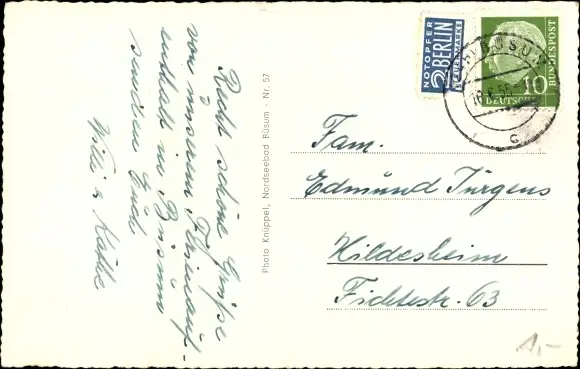 Recht schöne Grüße
von unserem Ferienauf-
enthalt in Büsum
senden Euch
Willi & Käthe
Photo Knüppel, Nordseebad Büsum - Nr. 57
NOTOPFER
2 BERLIN
STEUERMARKE
BÜSUM
DEUTSCHE
BUNDESPOST
10
Fam.
Edmund Jürgens
Hildesheim
Fichtestr. 63
1,-